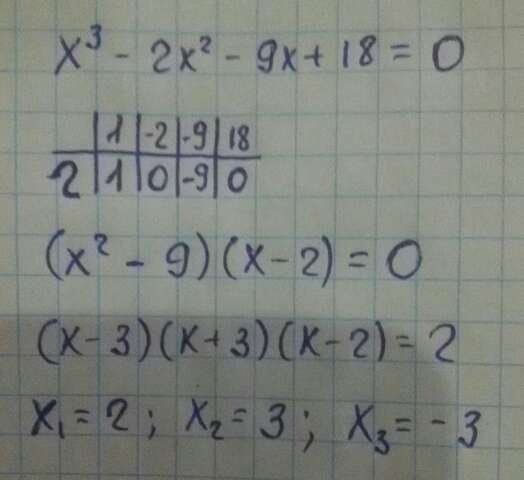 x³ - 2x² - 9x + 18 = 0
| 1 | -2 | -9 | 18
2 | 1 | 0 | -9 | 0
(x² - 9)(x - 2) = 0
(x - 3)(x + 3)(x - 2) = 2
x₁ = 2; x₂ = 3; x₃ = -3